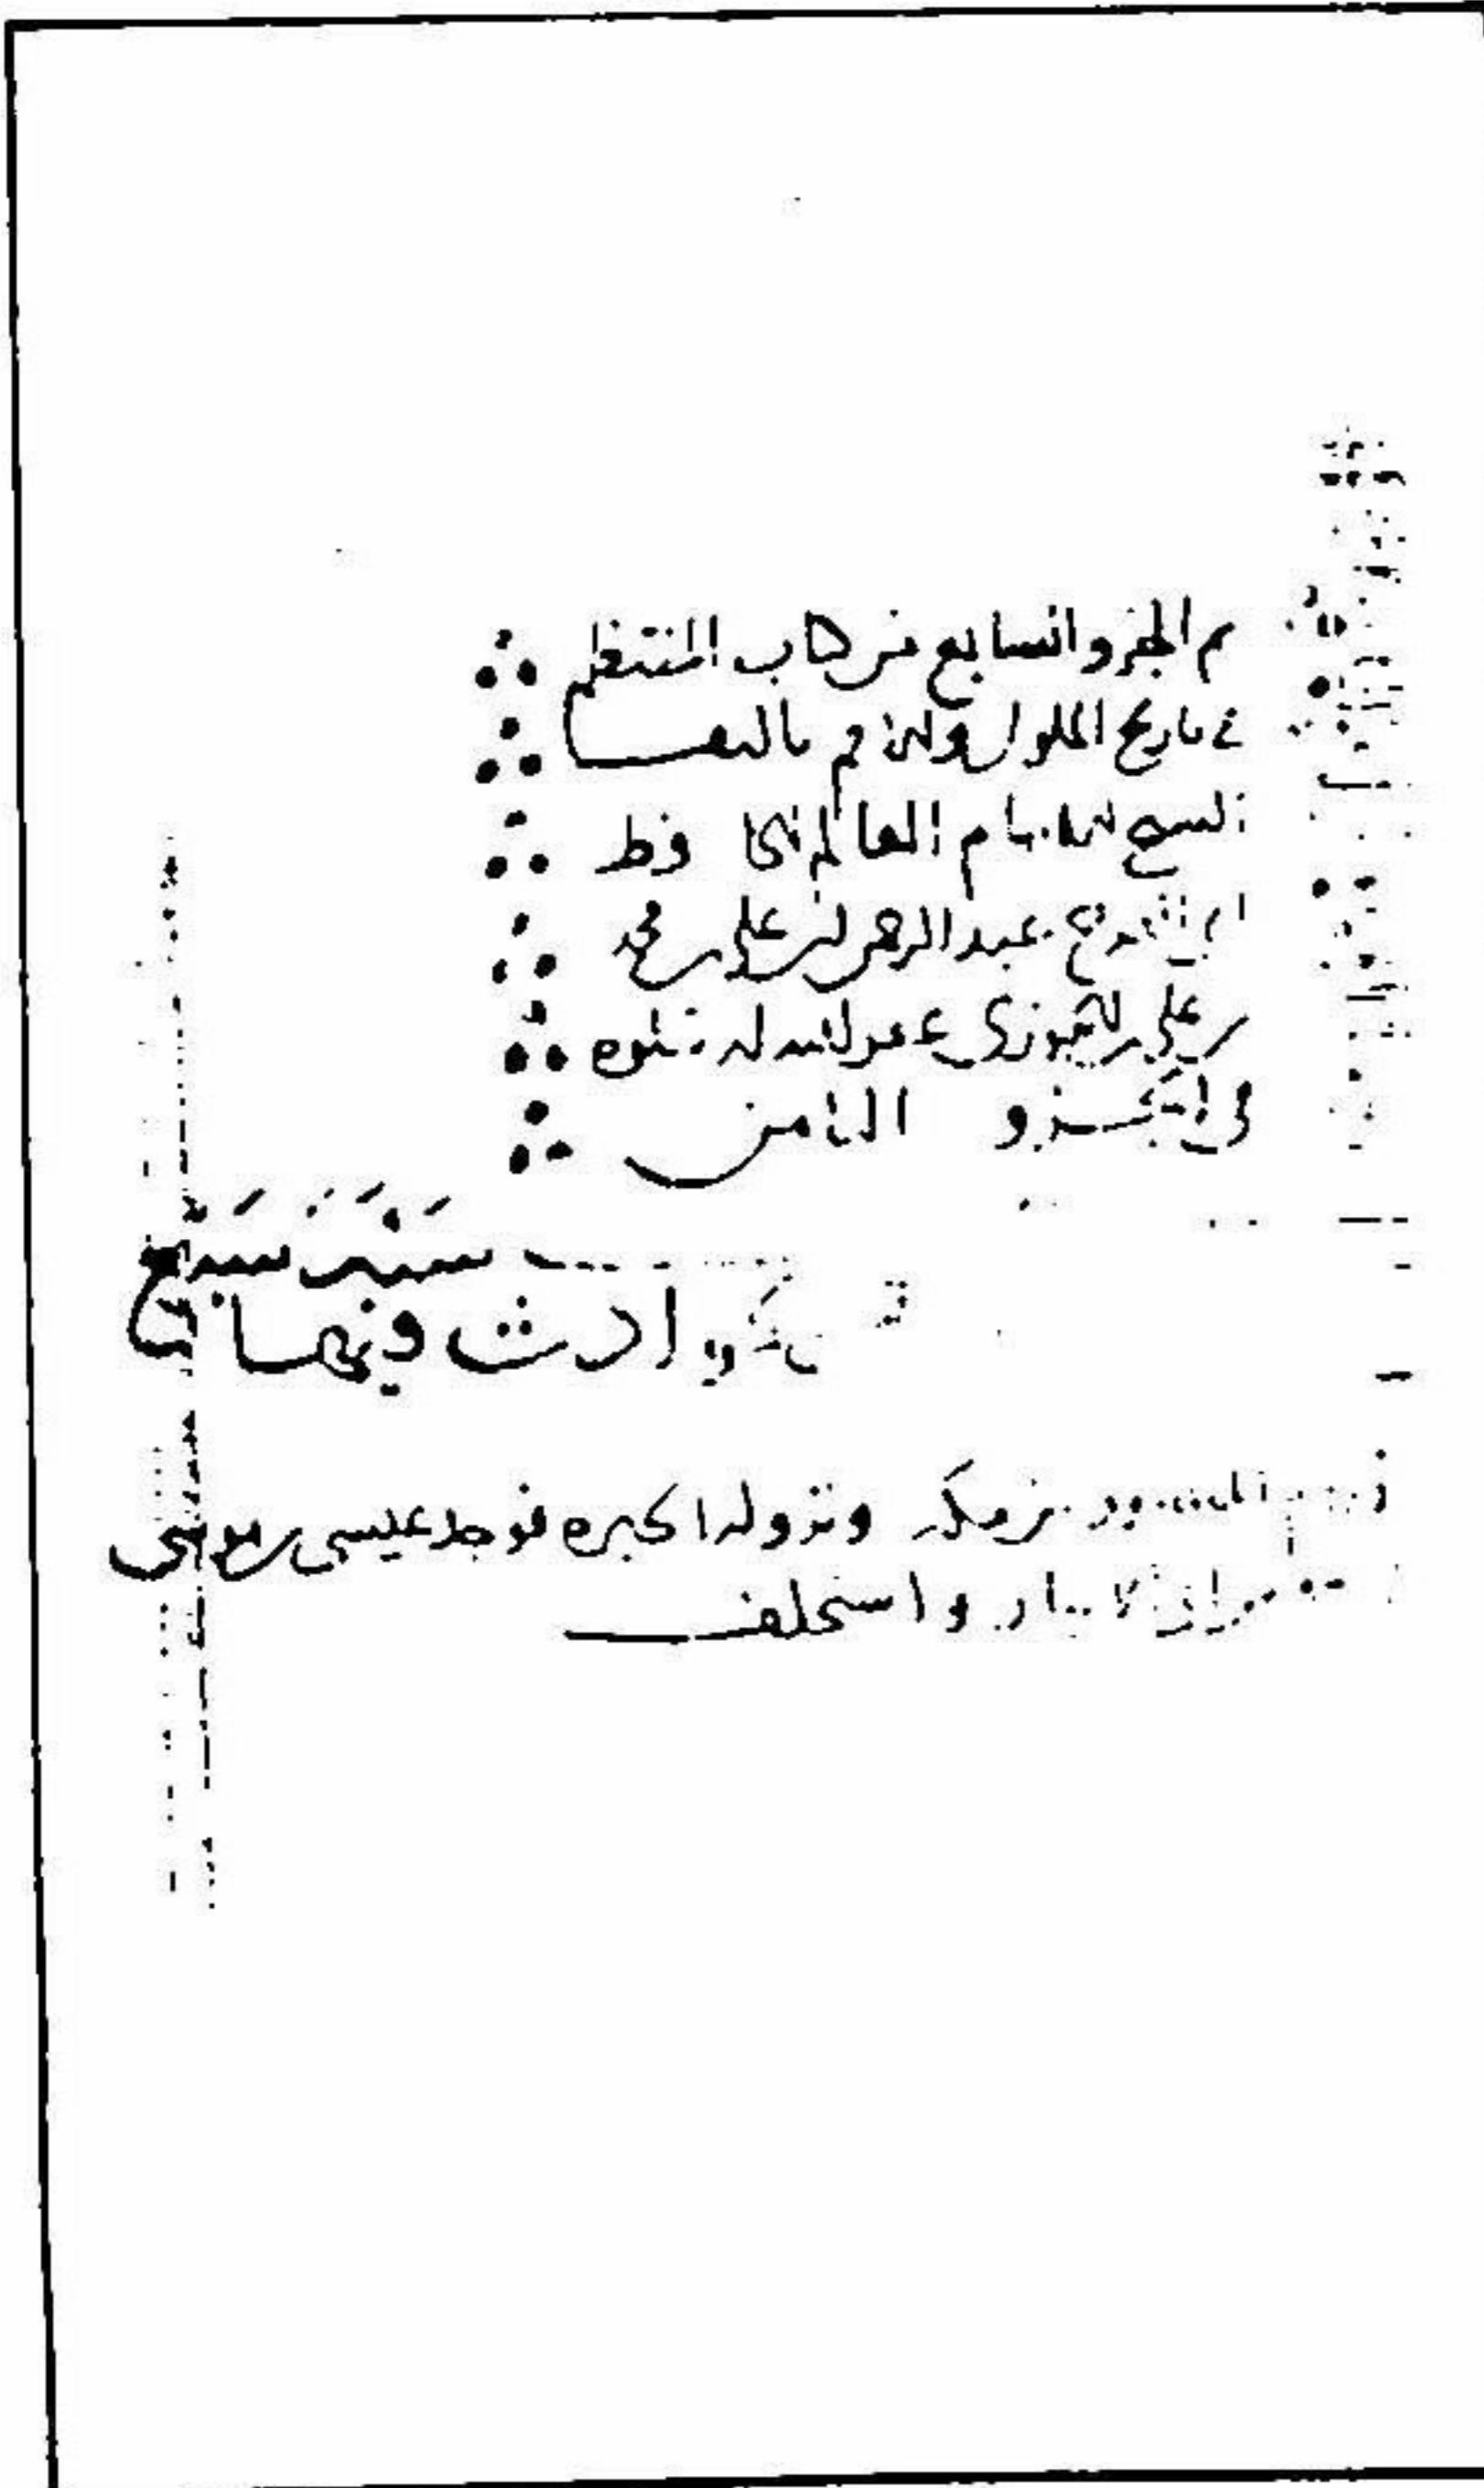 تم الجزو السابع من كتاب المنتظم
في تاريخ الملوك والامم تاليف
الشيخ الامام العالم الحافظ
ابي الفرج عبد الرحمن بن علي بن محمد
بن علي بن الجوزي عفو الله له يتلوه
في الجزو الثامن
سنة سبع
الحوادث فيها
المنصور من مكة ونزوله الحيرة فوجد عيسى بن موسى
الانبار واستخلف